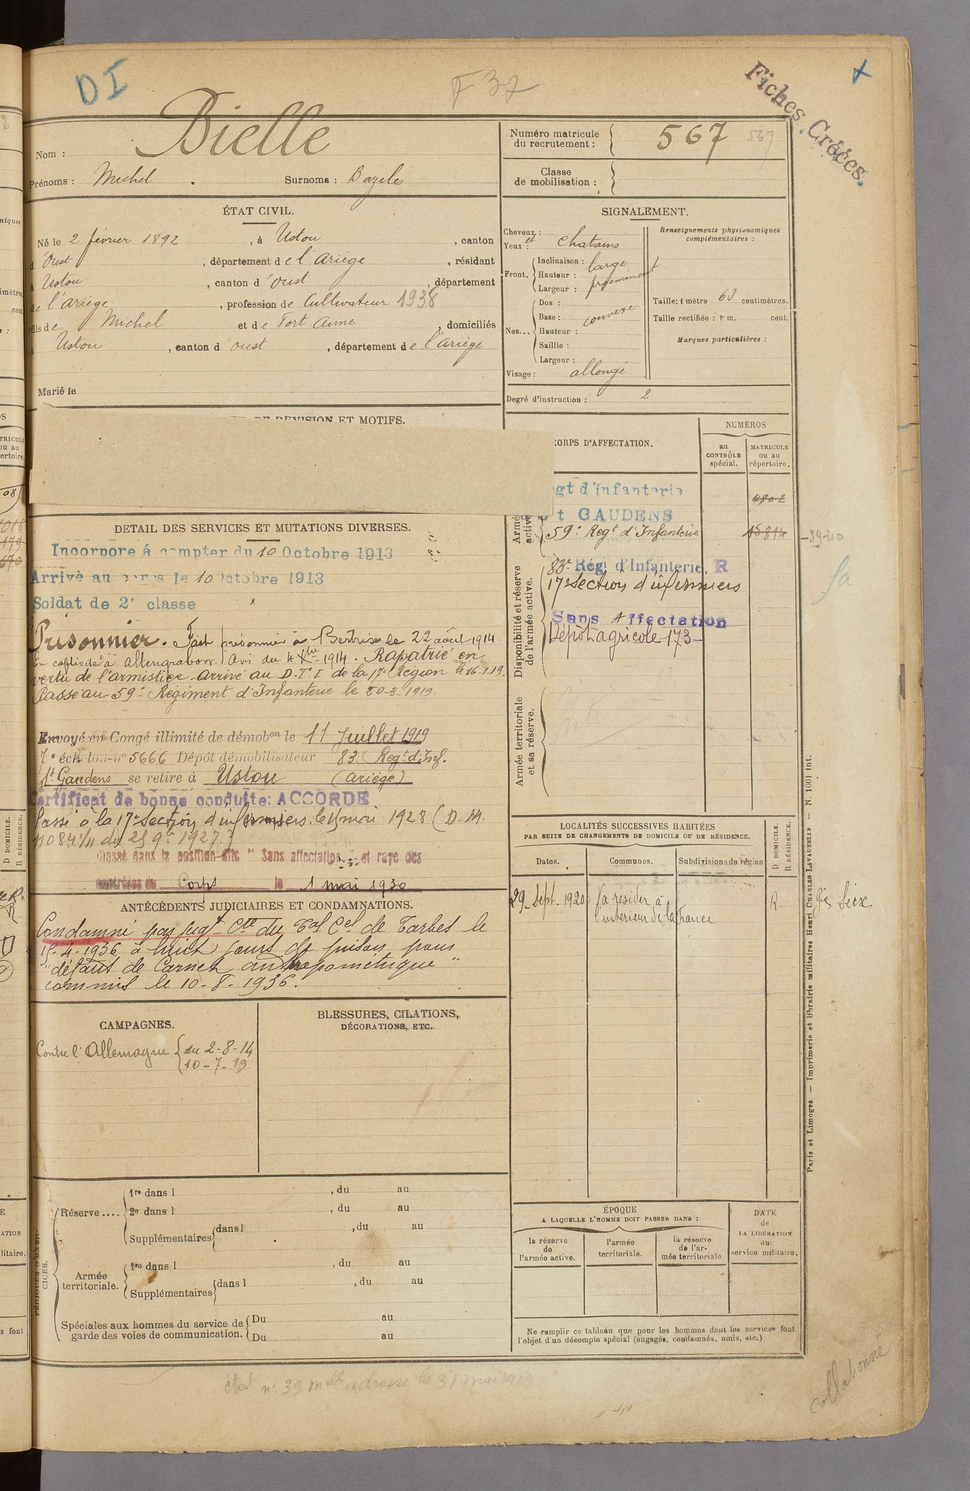 DI
F 37
Fiches Créées.
Nom : Bielle
Prénoms : Michel . Surnoms : Bazile
Numéro matricule du recrutement : 567 567
Classe de mobilisation :
ÉTAT CIVIL.
Né le 2 février 1892 , à Ustou , canton
d Oust , département de l'Ariège , résidant
à Ustou , canton d'Oust , département
de l'ariège , profession de Cultivateur 1938
fils de Michel et de Fort Anne , domiciliés
à Ustou , canton d oust , département de l'ariège
Marié le
SIGNALEMENT.
Cheveux :
Yeux : et chatains
Front. Inclinaison : large
Hauteur :
Largeur : proéminent
Nez... Dos :
Base : convexe
Hauteur :
Saillie :
Largeur :
Visage : allongé
Renseignements physionomiques complémentaires :
Taille: 1 mètre 63 centimètres.
Taille rectifiée : 1 m. cent.
Marques particulières :
Degré d'instruction : 2
DE REVISION ET MOTIFS.
CORPS D'AFFECTATION.
NUMÉROS
au CONTRÔLE spécial.
MATRICULE ou au répertoire.
gt d'infanterie
t GAUDENS
59e Regt d'Infanterie 15814
83e Régt d'Infanterie. R
17e Section d'infirmiers
Sans Affectation
Dépôt agricole 173
Armée active.
Disponibilité et réserve de l'armée active.
Armée territoriale et sa réserve.
DETAIL DES SERVICES ET MUTATIONS DIVERSES.
Incorporé à compter du 10 Octobre 1913
Arrivé au corps le 10 Octobre 1913
Soldat de 2e classe
Prisonnier. Fait prisonnier à Bertrix le 22 août 1914.
En captivité à Altengrabow. Avi du 4 Xbre 1914. Rapatrié en
vertu de l'armistice arrivé au D.T.I de la 17e Région le 16.1.19.
Passé au 59e Régiment d'Infanterie le 20-3-1919.
Envoyé en Congé illimité de démobon le 11 Juillet 1919
7e échelon no 5666 Dépôt démobilisateur 83e Regt d'Inf.
St Gaudens se retire à Ustou (ariège)
Certificat de bonne conduite: ACCORDE
Passé à la 17e Section d'infirmiers. le 1 mai 1928 (D. M.
du 25 9e 1927.)
Classé dans la position dite "Sans affectation" et rayé des
contrôles du Corps le 1 mai 1930
ANTÉCÉDENTS JUDICIAIRES ET CONDAMNATIONS.
Condamné par jugt Cre du Tal Cel de Tarbes le
1936 à huit jours de prison pour
"défaut de Carnet anthropométrique"
commis le 10-8-1936.
LOCALITÉS SUCCESSIVES HABITÉES
PAR SUITE DE CHANGEMENTS DE DOMICILE OU DE RÉSIDENCE.
Dates. Communes. Subdivisions de région D DOMICILE. R RÉSIDENCE.
29 Sept. 1920 Va résider à l'intérieur de la france R.
CAMPAGNES.
Contre l'Allemagne du 2-8-14
10-7-19
BLESSURES, CITATIONS, DÉCORATIONS, ETC.
Réserve.... 1re dans l , du au
2e dans l , du au
Supplémentaires dans l , du au
Armée territoriale. 1re dans l , du au
Supplémentaires dans l , du au
Spéciales aux hommes du service de garde des voies de communication. Du au
Du au
ÉPOQUE
A LAQUELLE L'HOMME DOIT PASSER DANS :
la réserve de l'armée active.
l'armée territoriale.
la réserve de l'armée territoriale.
DATE de LA LIBÉRATION du service militaire.
Ne remplir ce tableau que pour les hommes dont les services font
l'objet d'un décompte spécial (engagés, condamnés, omis, etc.)
Paris et Limoges. — Imprimerie et librairie militaires Henri CHARLES-LAVAUZELLE. — N. 1001 int.
collationné